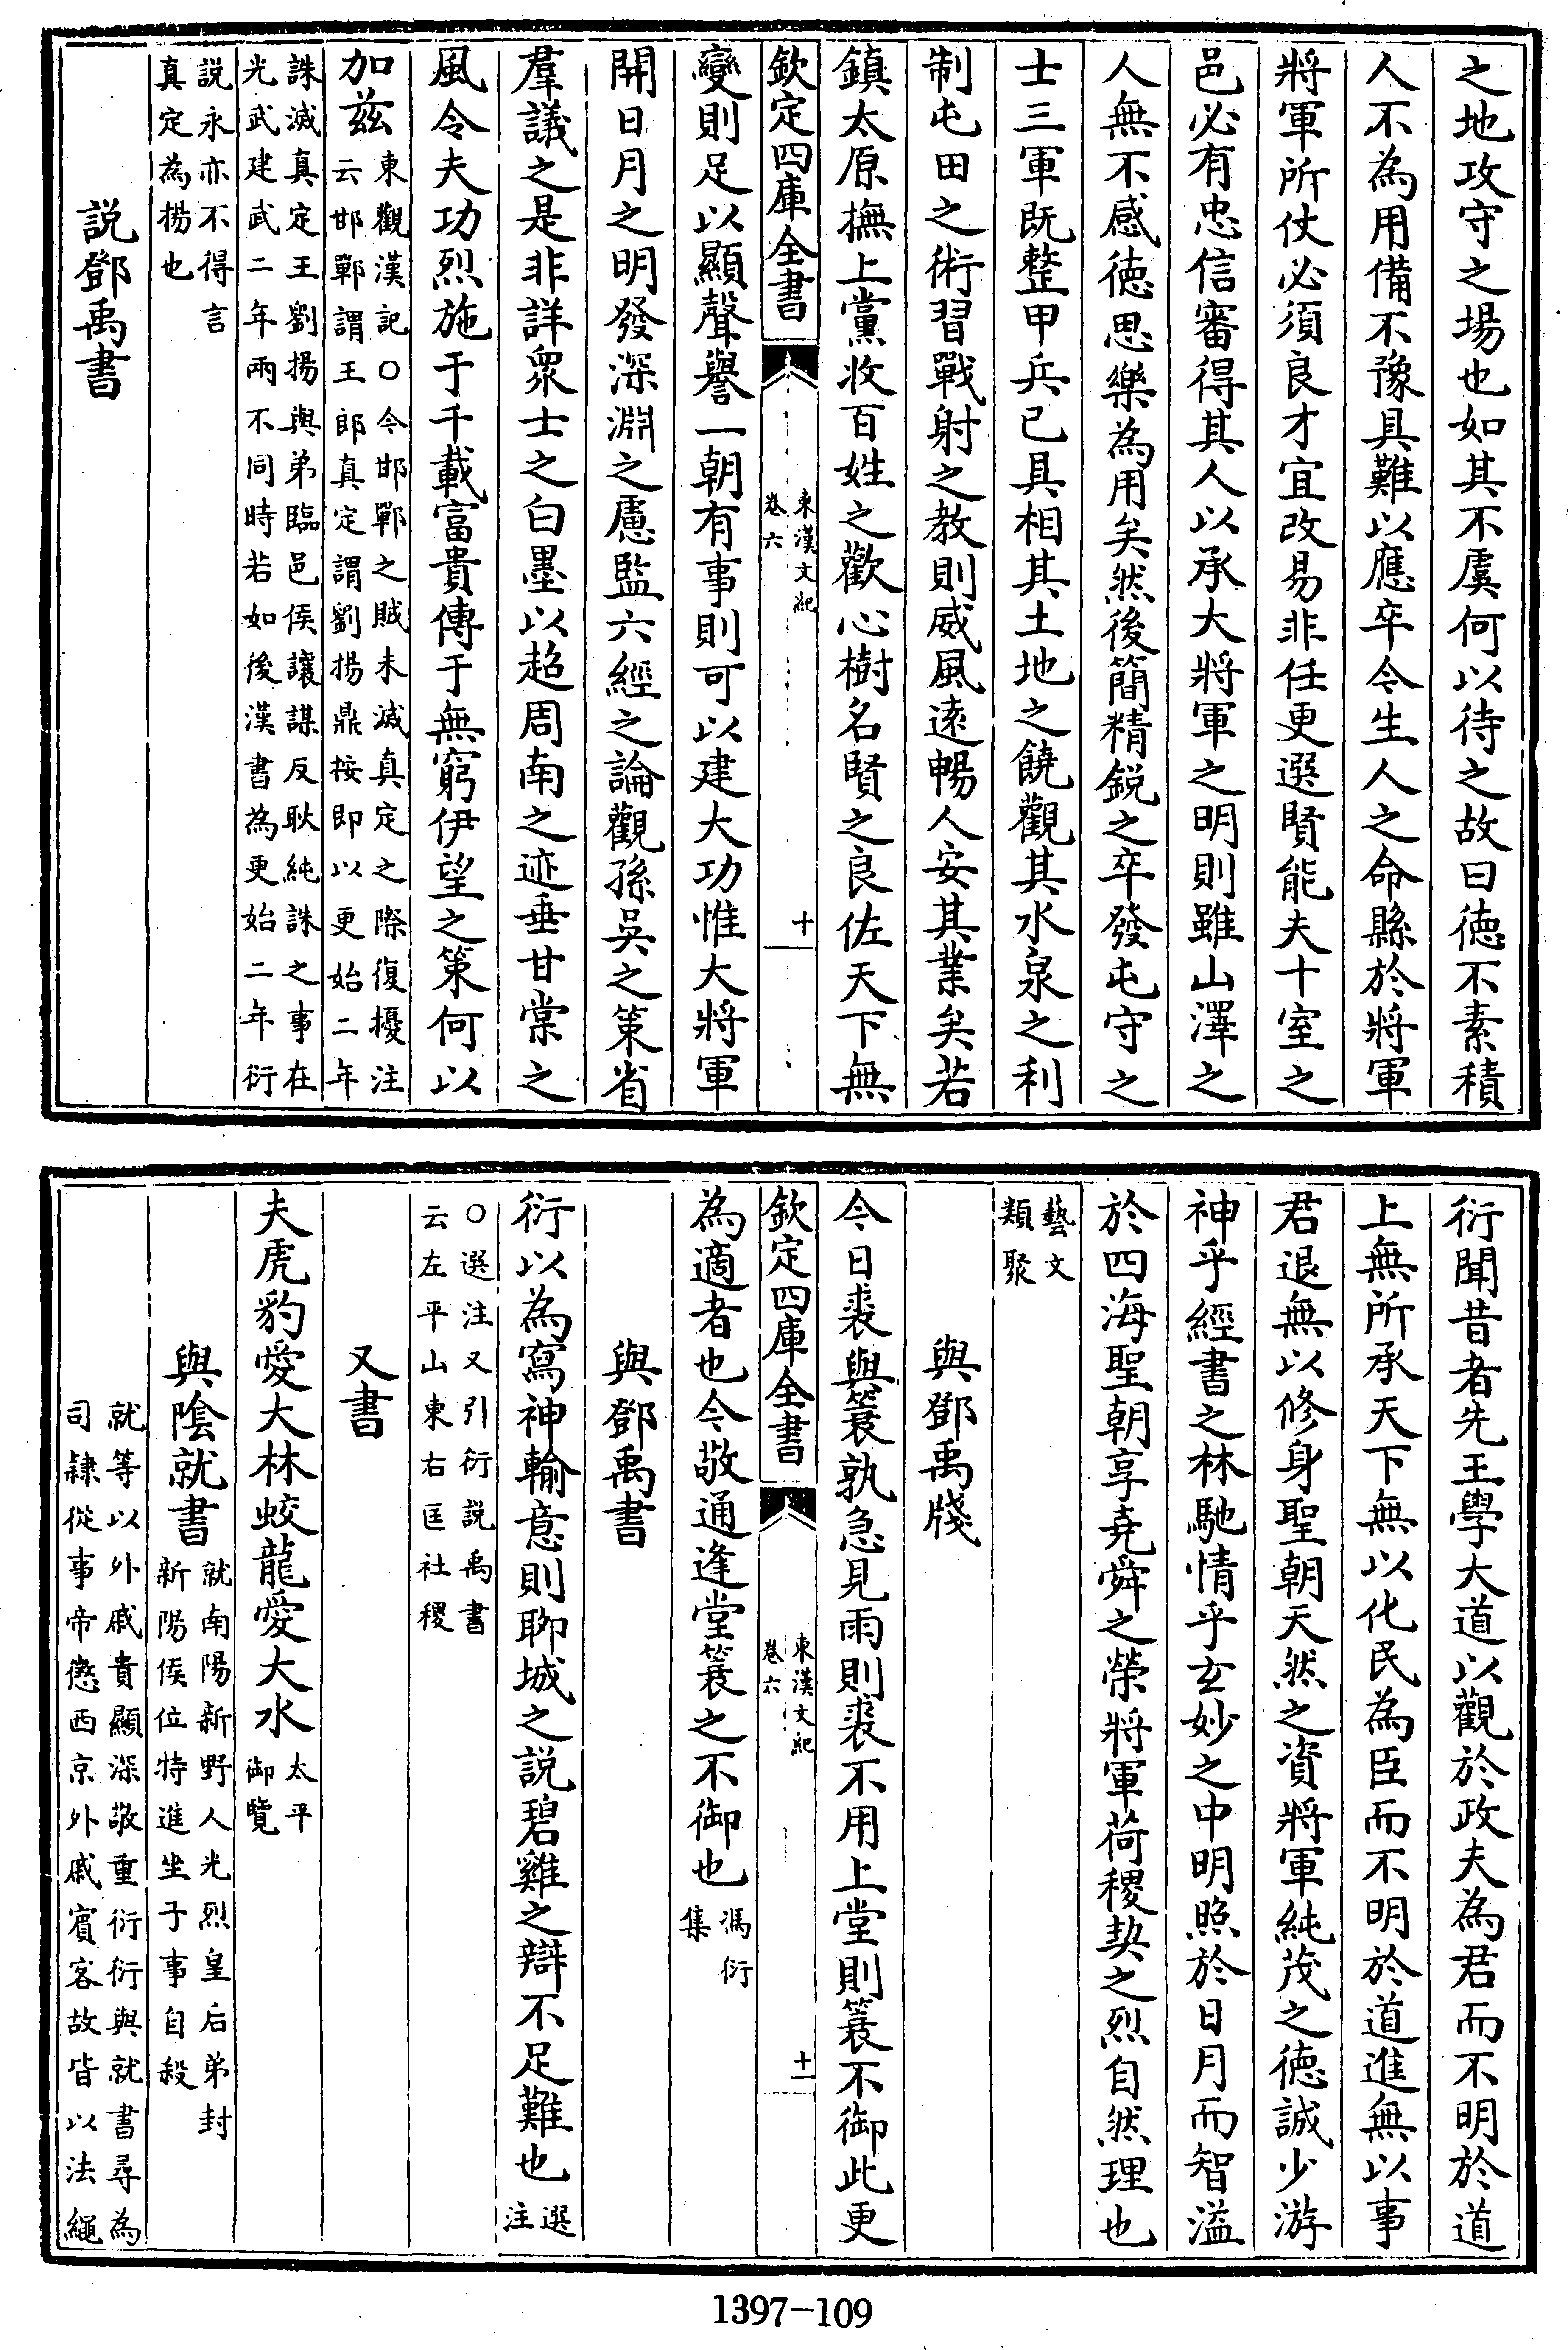 之地攻守之場也如其不虞何以待之故曰徳不素積
人不為用備不豫具難以應卒今生人之命縣於將軍
將軍所仗必須良才宜改易非任更選賢能夫十室之
邑必有忠信審得其人以承大將軍之明則雖山澤之
人無不感徳思樂為用矣然後簡精銳之卒發屯守之
士三軍既整甲兵已具相其土地之饒觀其水泉之利
制屯田之術習戰射之教則威風遠暢人安其業矣若
鎮太原撫上黨收百姓之歡心樹名賢之良佐天下無
欽定四庫全書
東漢文紀
卷六
十
變則足以顯聲譽一朝有事則可以建大功惟大將軍
開日月之明發深淵之慮監六經之論觀孫吳之策省
羣議之是非詳衆士之白墨以超周南之迹垂甘棠之
風令夫功烈施于千載富貴傳于無窮伊望之策何以
加兹
東觀漢記○今邯鄲之賊未滅真定之際復擾注
云邯鄲謂王郎真定謂劉揚鼎按即以更始二年
誅滅真定王劉揚與弟臨邑侯讓謀反耿純誅之事在
光武建武二年兩不同時若如後漢書為更始二年衍
説永亦不得言
真定為揚也
説鄧禹書
衍聞昔者先王學大道以觀於政夫為君而不明於道
上無所承天下無以化民為臣而不明於道進無以事
君退無以修身聖朝天然之資將軍純茂之徳誠少游
神乎經書之林馳情乎玄妙之中明照於日月而智溢
於四海聖朝享堯舜之榮將軍荷稷契之烈自然理也
藝文
類聚
與鄧禹牋
今日裘與簔孰急見雨則裘不用上堂則簔不御此更
欽定四庫全書
東漢文紀
卷六
十一
為適者也今敬通逢堂簔之不御也
馮衍
集
與鄧禹書
衍以為寫神輸意則聊城之説碧雞之辯不足難也
選
注
○選注又引衍説禹書
云左平山東右匡社稷
又書
夫虎豹愛大林蛟龍愛大水
太平
御覽
與陰就書
就南陽新野人光烈皇后弟封
新陽侯位特進坐子事自殺
就等以外戚貴顯深敬重衍衍與就書尋為
司隷從事帝懲西京外戚賓客故皆以法繩
1397-109